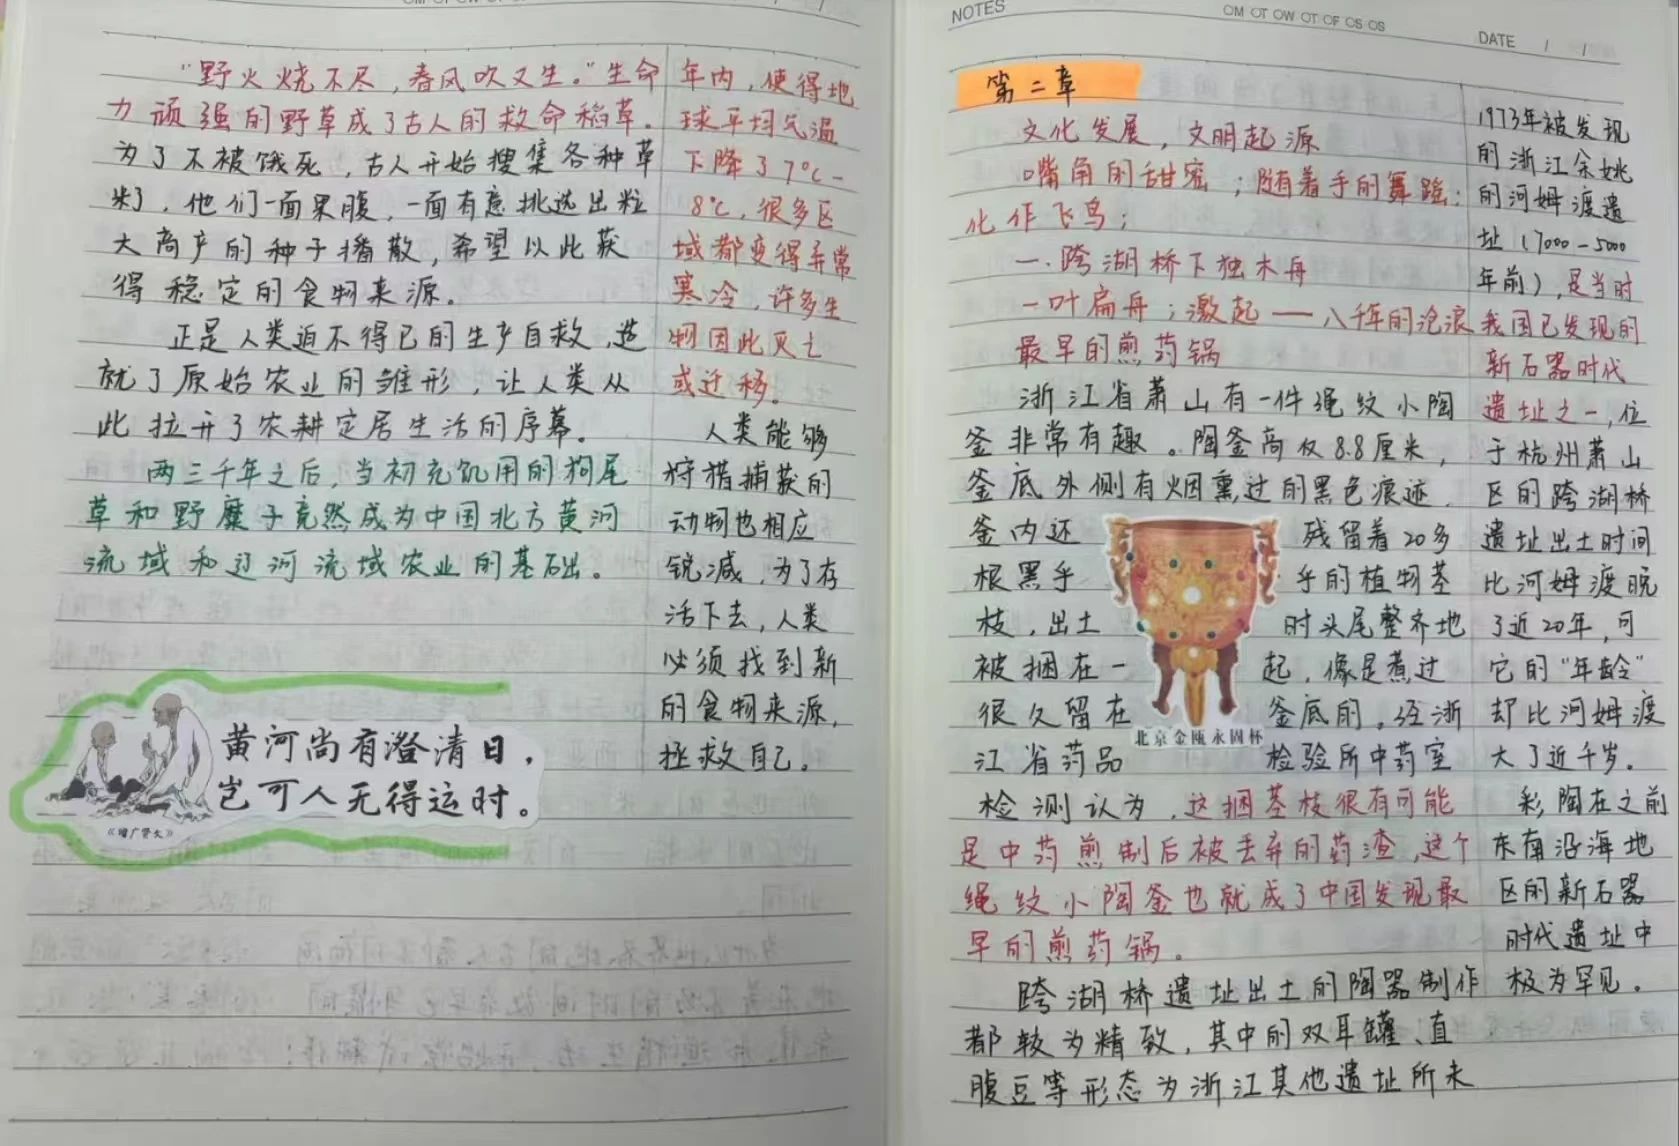 “野火烧不尽，春风吹又生。”生命
力顽强的野草成了古人的救命稻草。
为了不被饿死，古人开始搜集各种草
籽，他们一面果腹，一面有意挑选出粒
大高产的种子播散，希望以此获
得稳定的食物来源。
正是人类迫不得已的生产自救，造
就了原始农业的雏形，让人类从
此拉开了农耕定居生活的序幕。
两三千年之后，当初充饥用的狗尾
草和野糜子竟然成为中国北方黄河
流域和辽河流域农业的基础。
黄河尚有澄清日，
岂可人无得运时。
《增广贤文》
年内，使得地
球平均气温
下降了7℃-
8℃，很多区
域都变得异常
寒冷，许多生
物因此灭亡
或迁移。
人类能够
狩猎捕获的
动物也相应
锐减，为了存
活下去，人类
必须找到新
的食物来源，
拯救自己。
NOTES
OM OT OW OT OF OS OS
DATE / /
第二章
文化发展，文明起源
嘴角的甜蜜；随着手的舞蹈；
化作飞鸟；
一.跨湖桥下独木舟
一叶扁舟；激起——八千年的沧浪
最早的煎药锅
浙江省萧山有一件绳纹小陶
釜非常有趣。陶釜高仅8.8厘米，
釜底外侧有烟熏过的黑色痕迹.
釜内还 残留着20多
根黑乎 乎的植物茎
枝，出土 时头尾整齐地
被捆在一 起，像是煮过
很久留在 釜底的，经浙
江省药品 检验所中药室
检测认为，这捆茎枝很有可能
是中药煎制后被丢弃的药渣，这个
绳纹小陶釜也就成了中国发现最
早的煎药锅。
跨湖桥遗址出土的陶器制作
都较为精致，其中的双耳罐、直
腹豆等形态为浙江其他遗址所未
北京金瓯永固杯
1973年被发现
的浙江余姚
的河姆渡遗
址（7000-5000
年前），是当时
我国已发现的
新石器时代
遗址之一，位
于杭州萧山
区的跨湖桥
遗址出土时间
比河姆渡晚
了近20年，可
它的“年龄”
却比河姆渡
大了近千岁。
彩陶在之前
东南沿海地
区的新石器
时代遗址中
极为罕见。